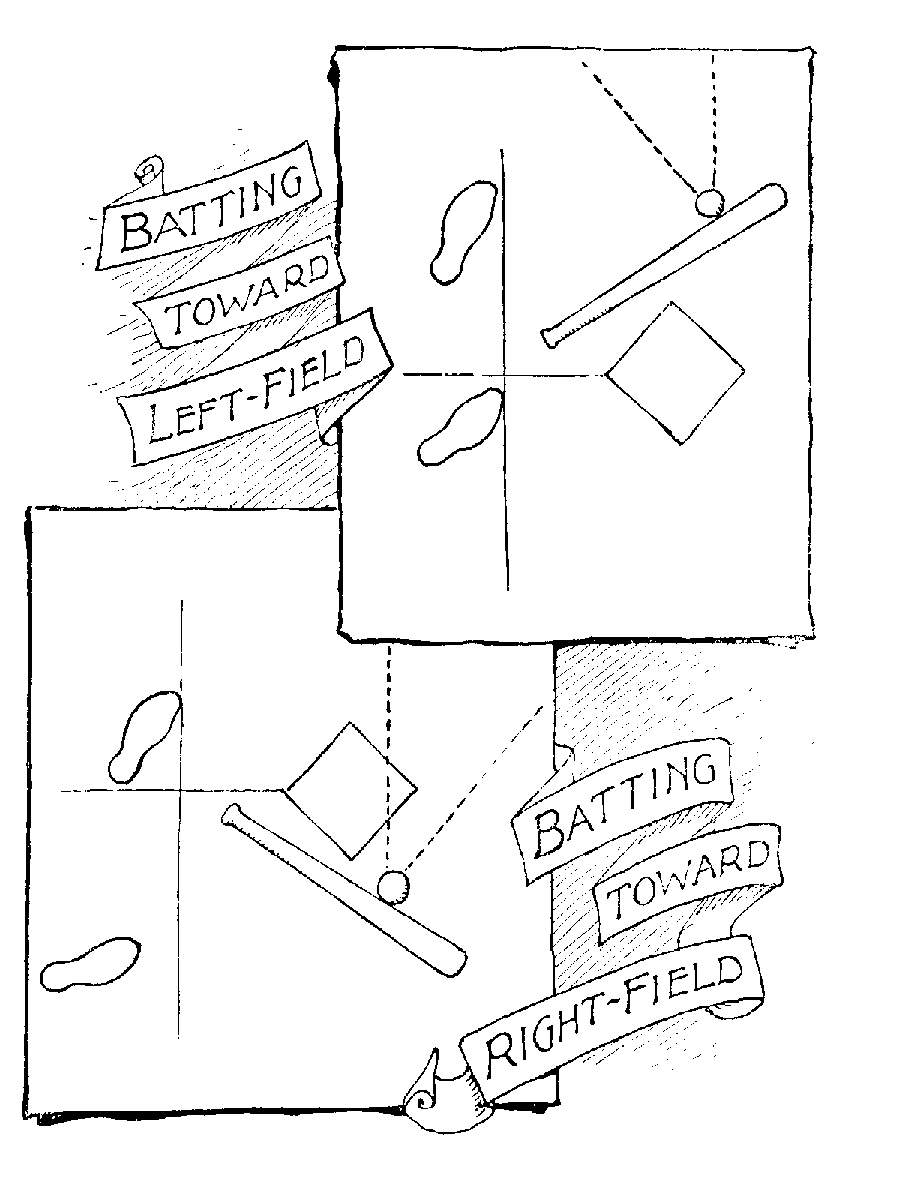 BATTING
TOWARD
LEFT-FIELD
BATTING
TOWARD
RIGHT-FIELD